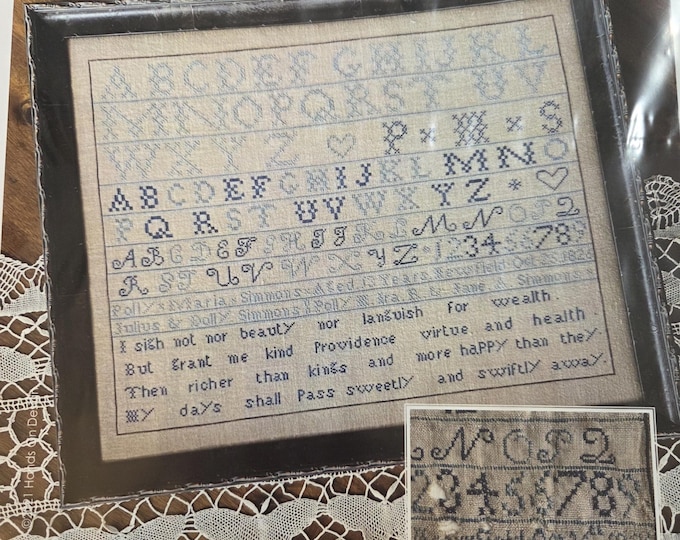 A B C D E F G H I J K L
M N O P Q R S T U V
W X Y Z ♡ P × M × S
A B C D E F G H I J K L M N O
P Q R S T U V W X Y Z * ♡
A B C D E F G H I J K L M N O P Q
R S T U V W X Y Z 1 2 3 4 5 6 7 8 9
Polly × Maria × Simmons × Aged 13 Years New Oct 25 182
Julius & Polly Simmons Polly M. Ira. R & Jane. A Simmons
I sigh not nor beauty nor languish for wealth.
But grant me kind Providence virtue and health.
Then richer than kings and more happy than they.
My days shall Pass sweetly and swiftly away.
N O P Q
2 3 4 5 6 7 8 9
©2021 Hands On Design